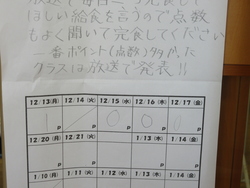 放送で毎日一つ完食して
ほしい給食を言うので点数
もよく聞いて完食してください
一番ポイント(点数)が高かった
クラスは放送で発表!!
12/13(月) 12/14(火) 12/15(水) 12/16(木) 12/17(金)
1 1 0 0
P P P P P
12/20(月) 12/21(火) 1/13(木) 1/14(金)
P P P P
1/10(月) 1/11(火) 1/12(水) 1/13(木) 1/14(金)